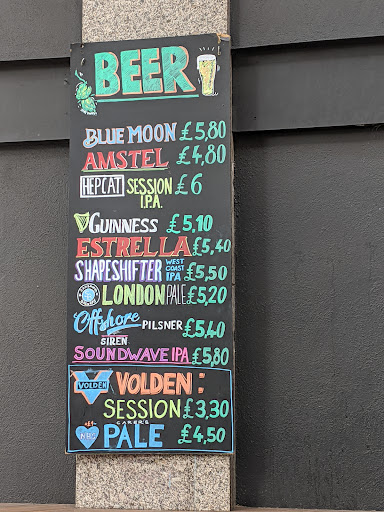 BEER
BLUE MOON £5,80
AMSTEL £4,80
HEPCAT SESSION I.P.A. £6
GUINNESS £5,10
ESTRELLA £5,40
SHAPESHIFTER WEST COAST IPA £5,50
LONDON PALE £5,20
Offshore PILSNER £5,40
SIREN
SOUNDWAVE IPA £5,80
VOLDEN VOLDEN:
SESSION £3,30
PALE £4,50